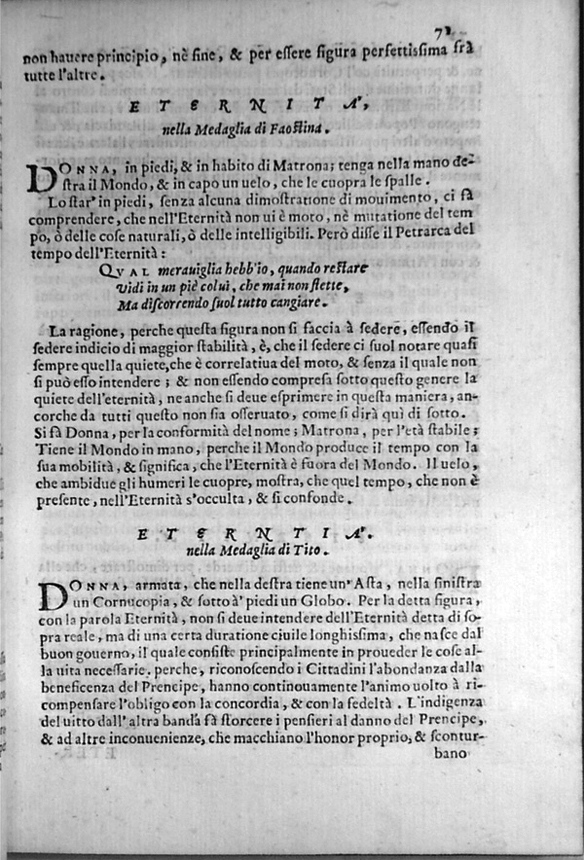 71
non hauere principio, nè fine, & per essere figura perfettissima frà
tutte l'altre.
ETERNITA',
nella Medaglia di Faostina.
DONNA, in piedi, & in habito di Matrona; tenga nella mano de-
stra il Mondo, & in capo un uelo, che le cuopra le spalle.
Lo star' in piedi, senza alcuna dimostratione di mouimento, ci fà
comprendere, che nell'Eternità non ui è moto, nè mutatione del tem
po, ò delle cose naturali, ò delle intelligibili. Però disse il Petrarca del
tempo dell'Eternità:
QVAL merauiglia hebb'io, quando restare
Vidi in un piè colui, che mai non stette,
Ma discorrendo suol tutto cangiare.
La ragione, perche questa figura non si faccia à sedere, essendo il
sedere indicio di maggior stabilità, è, che il sedere ci suol notare quasi
sempre quella quiete, che è correlatiua del moto, & senza il quale non
si può esso intendere; & non essendo compresa sotto questo genere la
quiete dell'eternità, ne anche si deue esprimere in questa maniera, an-
corche da tutti questo non sia osseruato, come si dirà quì di sotto.
Si fà Donna, per la conformità del nome; Matrona, per l'età stabile;
Tiene il Mondo in mano, perche il Mondo produce il tempo con la
sua mobilità, & significa, che l'Eternità è fuora del Mondo. Il uelo,
che ambidue gli humeri le cuopre, mostra, che quel tempo, che non è
presente, nell'Eternità s'occulta, & si confonde.
ETERNTIA'.
nella Medaglia di Tito.
DONNA, armata, che nella destra tiene un' Asta, nella sinistra
un Cornucopia, & sotto à' piedi un Globo. Per la detta figura,
con la parola Eternità, non si deue intendere dell'Eternità detta di so-
pra reale, ma di una certa duratione ciuile longhissima, che nasce dal
buon gouerno, il quale consiste principalmente in proueder le cose al-
la uita necessarie. perche, riconoscendo i Cittadini l'abondanza dalla
beneficenza del Prencipe, hanno continouamente l'animo uolto à ri-
compensare l'obligo con la concordia, & con la fedeltà. L'indigenza
del uitto dall' altra banda fà storcere i pensieri al danno del Prencipe,
& ad altre inconuenienze, che macchiano l'honor proprio, & scontur-
bano